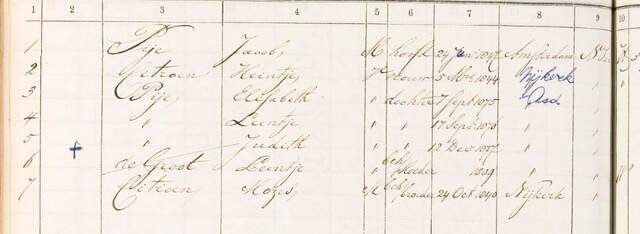 1 2 3 4 5 6 7 8 9 10
1 Pije Jacob M hoofd 24 Juni 1847 Amsterdam N. Isr
2 Citroen Heintje V vrouw 5 Nov 1844 Nijkerk
3 Pije Elisabeth " dochter 7 Sept 1875 Asd
4 " Leentje " " 17 Sept 1876 "
5 " Judith " " 12 Dec 1877 "
6 de Groot Leentje " Sch Moeder 1809 "
7 Citroen Mozes M Sch broeder 24 Oct 1840 Nijkerk "